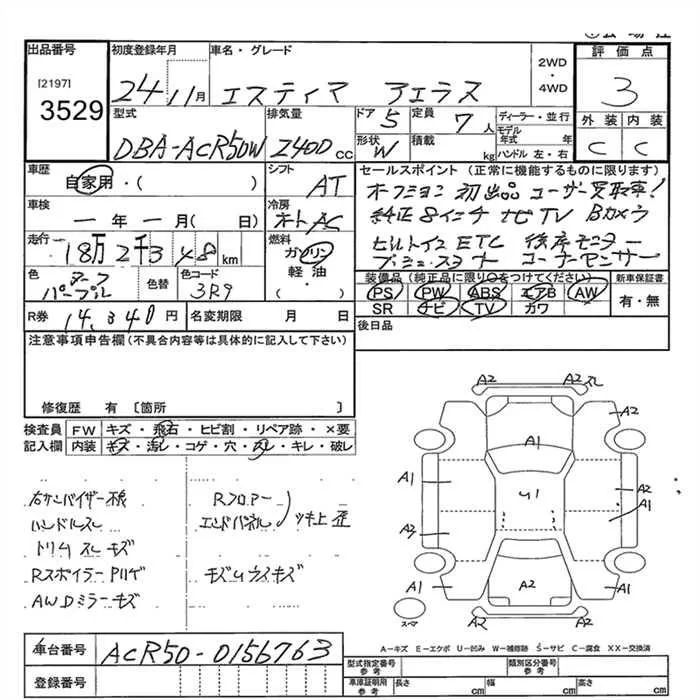 出品番号
[2197]
3529
初度登録年月
24 11月
車名・グレード
エスティマ アエラス
2WD
・
4WD
評価点
3
外装 内装
C C
型式
DBA-ACR50W
排気量
2400 cc
ドア 5
定員 7人
形状 W
積載 kg
ディーラー・並行
モデル年式 年式
ハンドル 左・右
車歴
自家用・( )
シフト
AT
車検
一年一月( 日)
冷房
オートAC
走行
18万2千348km
燃料
ガソリン
軽油
・( )
色
ダークパープル
色替
色コード
3R9
R券 14,340円
名変期限 月 日
セールスポイント(正常に機能するものに限ります)
オークション初出品 ユーザー買取車!
純正8インチナビTV Bカメラ
ビルトインETC 後席モニター
プッシュスタート コーナーセンサー
装備品(純正品に限り○をつけてください)
PS PW ABS エアB AW
SR ナビ TV カワ
新車保証書
有・無
後日品
注意事項申告欄(不具合内容等は具体的に記入して下さい)
修復歴 有〔箇所 〕
検査員 FW キズ・飛石・ヒビ割・リペア跡・×要
記入欄 内装 キズ・汚し・コゲ・穴・スレ・キレ・破し
右サンバイザー不良
ハンドルスレ
トリムスレキズ
RスポイラーPハゲ
AWDミラーキズ
Rフロアー
エンドパネル
ツキ上歪
モズUライキズ
A2 A2 スレ
A2
A1
A1 U1 A2
A2 A1
A1 A2 A1
A2 A2
スマ
A-キズ E-エクボ U-凹み W-補修跡 S-サビ C-腐食 XX-交換済
車台番号 ACR50-0156763
登録番号
型式指定番号 参考
類別区分番号 参考
車庫証明用 参考
長さ cm 幅 cm 高さ cm